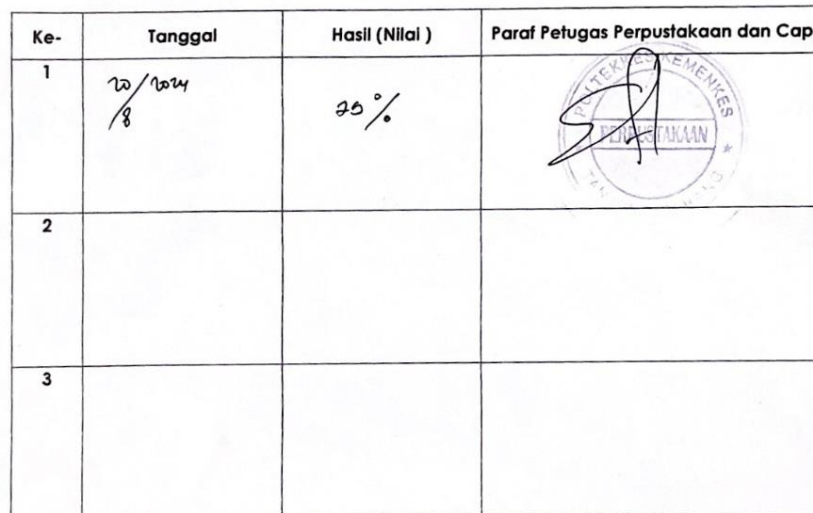 Ke- Tanggal Hasil (Nilai ) Paraf Petugas Perpustakaan dan Cap
1 20/8 2024 25 %
POLTEKKES KEMENKES
PERPUSTAKAAN
2
3